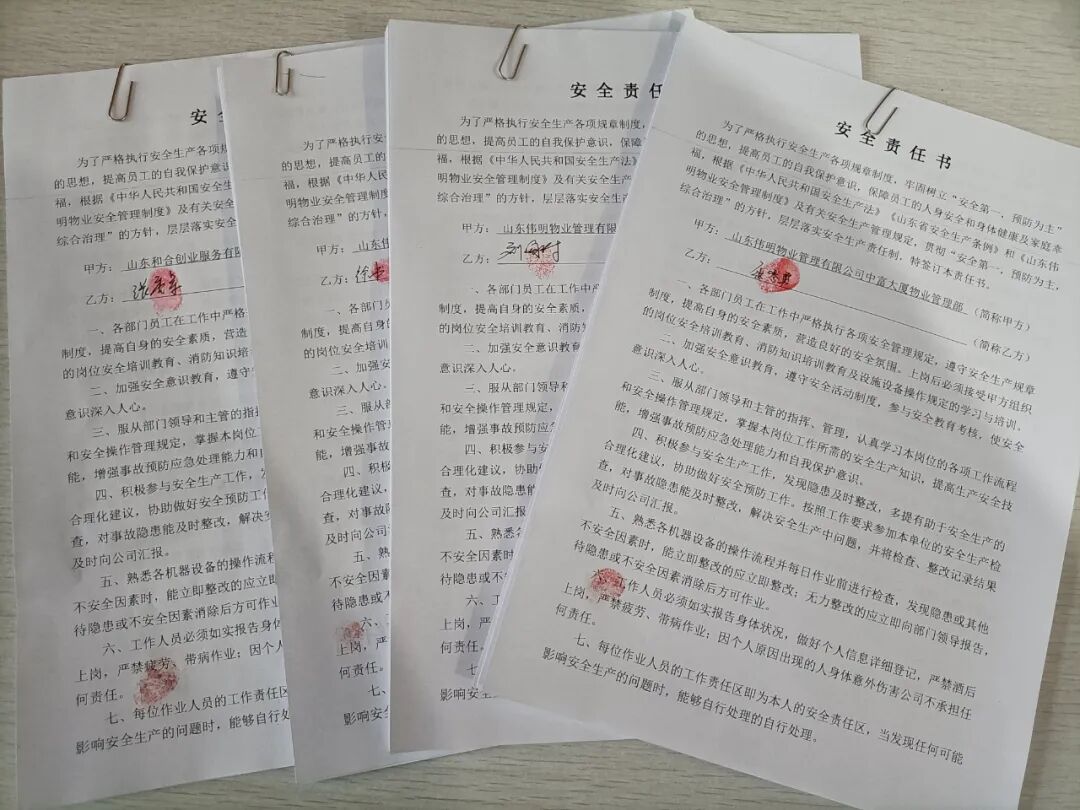 安全
为了严格执行安全生产各项规章制度
的思想，提高员工的自我保护意识
福，根据《中华人民共和国安全生
明物业安全管理制度》及有关安全生
综合治理”的方针，层层落实安全生产
甲方：山东和合创业服务有限
乙方：
一、各部门员工在工作中严格
制度，提高自身的安全素质，营造
的岗位安全培训教育、消防知识培
二、加强安全意识教育，遵守
意识深入人心。
三、服从部门领导和主管的指挥
和安全操作管理规定，掌握本岗位
能，增强事故预防应急处理能力和自
四、积极参与安全生产工作，发
合理化建议，协助做好安全预防工
查，对事故隐患能及时整改，解决安
及时向公司汇报。
五、熟悉各机器设备的操作流
不安全因素时，能立即整改的应立即
待隐患或不安全因素消除后方可作业
六、工作人员必须如实报告身体
上岗，严禁疲劳、带病作业；因个人
何责任。
七、每位作业人员的工作责任区
影响安全生产的问题时，能够自行处
为了严格执行安全生
的思想，提高员工的自我
福，根据《中华人民共和
明物业安全管理制度》及有
综合治理”的方针，层层落
甲方：山东伟
乙方：
一、各部门员
制度，提高自身的
的岗位安全培训教
二、加强安全
意识深入人心。
三、服从
和安全操作管
能，增强事故
四、积极
合理化建议，
查，对事故隐
及时向公司汇
五、熟
不安全因素时
待隐患或不安
六、
上岗，严
何责任。
七、
影响安
安全责任
为了严格执行安全生产各项规章制度，
的思想，提高员工的自我保护意识，保障
福，根据《中华人民共和国安全生产法》
明物业安全管理制度》及有关安全生产管
综合治理”的方针，层层落实安全生产责
甲方：山东伟明物业管理有限
乙方：
一、各部门员工在工作中严格
制度，提高自身的安全素质，营造
的岗位安全培训教育、消防知识
二、加强安全意识教育
意识深入人心。
三、服从部门领导
和安全操作管理规定，掌
能，增强事故预防应急处
四、积极参与安全
合理化建议，协助做好
查，对事故隐患能及时
及时向公司汇报。
五、熟悉各机器
不安全因素时，能立
待隐患或不安全因素
六、工作
上岗，严
何责任。
七、
影响安全
安全责任书
为了严格执行安全生产各项规章制度，牢固树立“安全第一，预防为主”
的思想，提高员工的自我保护意识，保障员工的人身安全和身体健康及家庭幸
福，根据《中华人民共和国安全生产法》《山东省安全生产条例》和《山东伟
明物业安全管理制度》及有关安全生产管理规定，贯彻“安全第一，预防为主，
综合治理”的方针，层层落实安全生产责任制，特签订本责任书。
甲方：山东伟明物业管理有限公司中富大厦物业管理部（简称甲方）
乙方：（简称乙方）
一、各部门员工在工作中严格执行各项安全管理规定，遵守安全生产规章
制度，提高自身的安全素质，营造良好的安全氛围。上岗后必须接受甲方组织
的岗位安全培训教育、消防知识培训教育及设施设备操作规定的学习与培训。
二、加强安全意识教育，遵守安全活动制度，参与安全教育考核，使安全
意识深入人心。
三、服从部门领导和主管的指挥、管理，认真学习本岗位的各项工作流程
和安全操作管理规定，掌握本岗位工作所需的安全生产知识，提高生产安全技
能，增强事故预防应急处理能力和自我保护意识。
四、积极参与安全生产工作，发现隐患及时整改，多提有助于安全生产的
合理化建议，协助做好安全预防工作。按照工作要求参加本单位的安全生产检
查，对事故隐患能及时整改，解决安全生产中问题，并将检查、整改记录结果
及时向公司汇报。
五、熟悉各机器设备的操作流程并每日作业前进行检查，发现隐患或其他
不安全因素时，能立即整改的应立即整改；无力整改的应立即向部门领导报告，
待隐患或不安全因素消除后方可作业。
六、工作人员必须如实报告身体状况，做好个人信息详细登记，严禁酒后
上岗，严禁疲劳、带病作业；因个人原因出现的人身体意外伤害公司不承担任
何责任。
七、每位作业人员的工作责任区即为本人的安全责任区，当发现任何可能
影响安全生产的问题时，能够自行处理的自行处理。